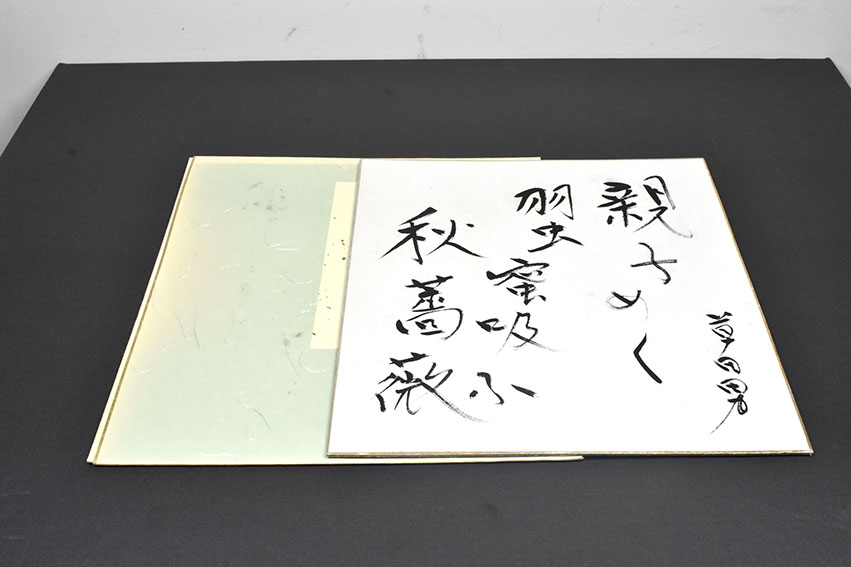 親ちめく
羽虫蜜吸ふ
秋薔薇
草田男